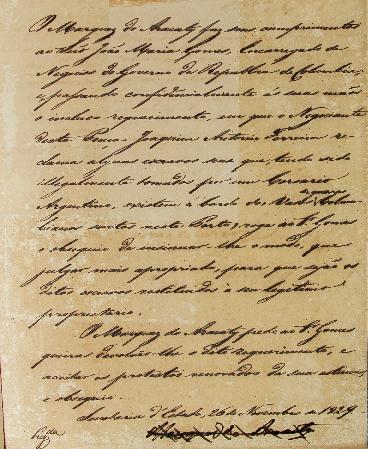 O Marquez do Aracaty faz seus cumprimentos
ao Snr. João Maria Gomes, Encarregado de
Negocios do Governo da Republica de Colombia,
e, passando confidencialmente ás suas mãos
o incluso requerimento, em que o Negociante
desta Praça, Joaquim Antonio Ferreira re-
clama alguns escravos seus que, tendo sido
illegalmente tomados por um Corsario
Argentino, existem a bordo dos
surtos neste Porto; roga ao Sr. Gomes
o obsequio de insinuar-lhe o modo, que
julgar mais apropriado, para que sejão os
ditos escravos restituidos a seu legitimo
proprietario.
O Marquez do Aracaty pede ao Sr. Gomes
queira devolver-lhe o dito requerimento, e
aceitar os protestos renovados da sua estima,
e obsequio.
Secretaria d'Estado, 26 de Novembro de 1829
Marquez do Aracaty